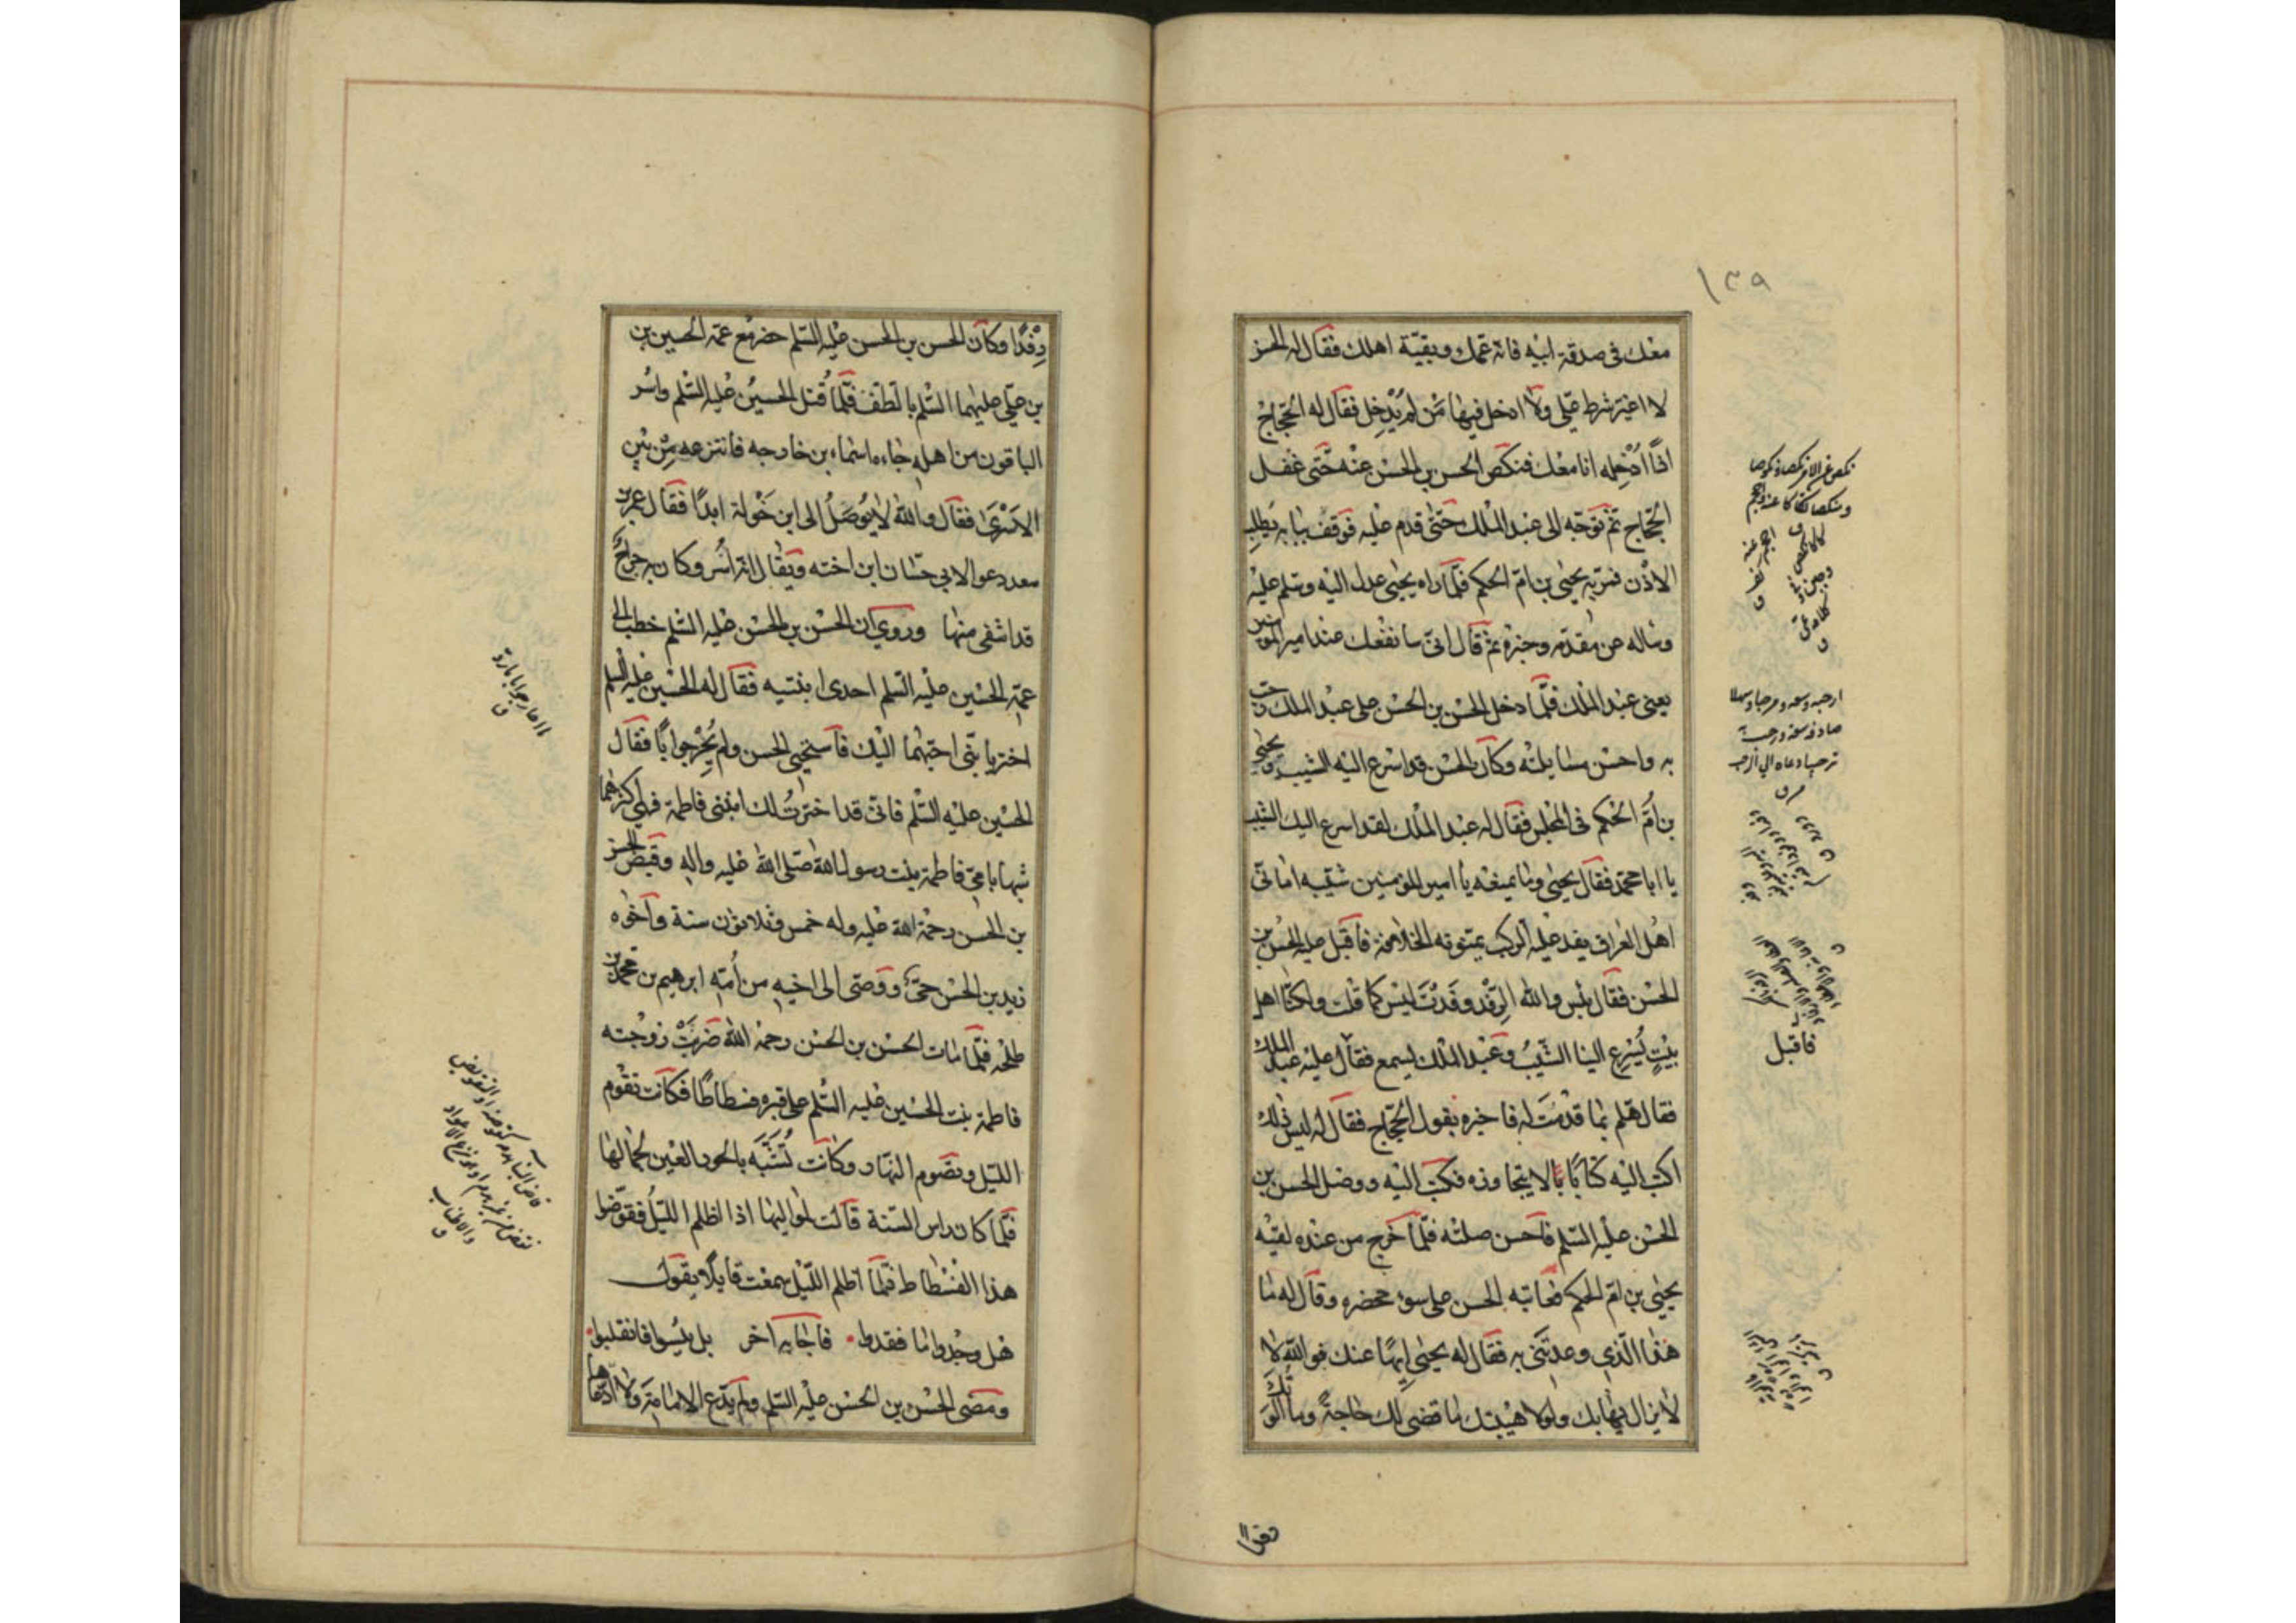 ١٣٩
معك في صدقة ابيه فانه عمك وبقية اهلك فقال له الحسن
لا اغير شرط علي ولا ادخل فيها من لم يدخل فقال له الحجاج
اذا ادخله انا معك فنكص الحسن بن الحسن عنه حتى غفل
الحجاج ثم توجه الى عبد الملك حتى قدم عليه فوقف ببابه يطلب
الاذن فمر به يحيى بن ام الحكم فلما راه يحيى عدل اليه وسلم عليه
وساله عن مقدمه وخبره ثم قال اني سانفعك عند امير المؤمنين
يعني عبد الملك فلما دخل الحسن بن الحسن على عبد الملك رحب
به واحسن مسايلته وكان الحسن قد اسرع اليه الشيب ويحيى
بن ام الحكم في المجلس فقال له عبد الملك لقد اسرع اليك الشيب
يا ابا محمد فقال يحيى وما يمنعه يا امير المؤمنين شيبه اماني
اهل العراق يفد عليه الركب يمنونه الخلافة فاقبل عليه الحسن بن
الحسن فقال بئس والله الرفد رفدت ليس كما قلت ولكنا اهل
بيت يسرع الينا الشيب وعبد الملك يسمع فقال عليه عبد الملك
فقال هلم بما قدمت له فاخبره بقول الحجاج فقال له ليس ذلك
اكتب اليه كتابا لا يتجاوزه فكتب اليه ووصل الحسن بن
الحسن عليه السلم فاحسن صلته فلما خرج من عنده لقيه
يحيى بن ام الحكم فعاتبه الحسن على سوء محضره وقال له ما
هذا الذي وعدتني به فقال له يحيى ايها عنك فوالله لا
لا يزال يهابك ولولا هيبتك ما قضى لك حاجة وما الوتك
فاقبل
رفدا وكان الحسن بن الحسن عليه السلم حضر مع عمه الحسين بن
بن علي عليهما السلم بالطف فلما قتل الحسين عليه السلم واسر
الباقون من اهله جاءه اسماء بن خارجه فانتزعه من بين
الاسرى فقال والله لا يوصل الى ابن خولة ابدا فقال عمر بن
سعد دعوا لابي حسان ابن اخته ويقال انه اسر وكان به جراح
قد اشفى منها وروي ان الحسن بن الحسن عليه السلم خطب الى
عمه الحسين عليه السلم احدى ابنتيه فقال له الحسين عليه السلم
اختر يا بني احبهما اليك فاستحيى الحسن ولم يحر جوابا فقال
الحسين عليه السلم فاني قد اخترت لك ابنتي فاطمة فهي اكثرهما
شبها بامي فاطمة بنت رسول الله صلى الله عليه واله وقبض الحسن
بن الحسن رحمة الله عليه وله خمس وثلاثون سنة واخوه
زيد بن الحسن حي ووصى الى اخيه من امه ابرهيم بن محمد بن
طلحه فلما مات الحسن بن الحسن رحمه الله ضربت زوجته
فاطمة بنت الحسين عليه السلم على قبره فسطاطا فكانت تقوم
الليل وتصوم النهار وكانت تشبه بالحور العين لجمالها
فلما كان راس السنة قالت لمواليها اذا اظلم الليل فقوضوا
هذا الفسطاط فلما اظلم الليل سمعت قايلا يقول
هل وجدوا ما فقدوا فاجابه اخر بل يئسوا فانقلبوا
ومضى الحسن بن الحسن عليه السلم ولم يدع الامامة ولا ادعاها